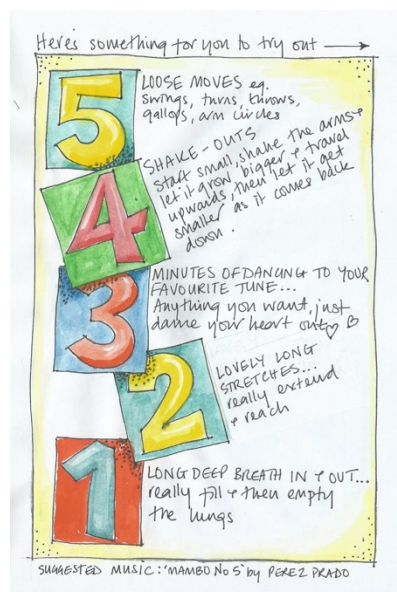 Here's something for you to try out
5
LOOSE MOVES eg.
swings, turns, throws,
gallops, arm circles
4
SHAKE-OUTS
start small, shake the arms &
let it grow, bigger & travel
upwards, then let it get
smaller as it comes back
down.
3
MINUTES OF DANCING TO YOUR
FAVOURITE TUNE...
Anything you want, just
dance your heart out
2
LOVELY LONG
STRETCHES...
really extend
& reach
1
LONG DEEP BREATH IN & OUT...
really fill & then empty
the lungs
SUGGESTED MUSIC: 'MAMBO No 5' by PEREZ PRADO